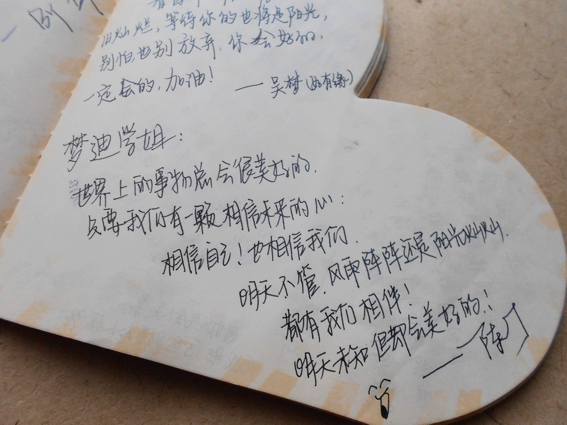 灿烂,等待你的也将是阳光,
别怕,也别放弃,你会好的。
一定会的,加油!
——吴梦
梦迪学姐:
世界上的事物总会很美好的。
只要我们有一颗相信未来的心:
相信自己!也相信我们。
明天不管,风雨阵阵还是阳光灿灿。
都有我们相伴!
明天未知但却会美好的!
——陈